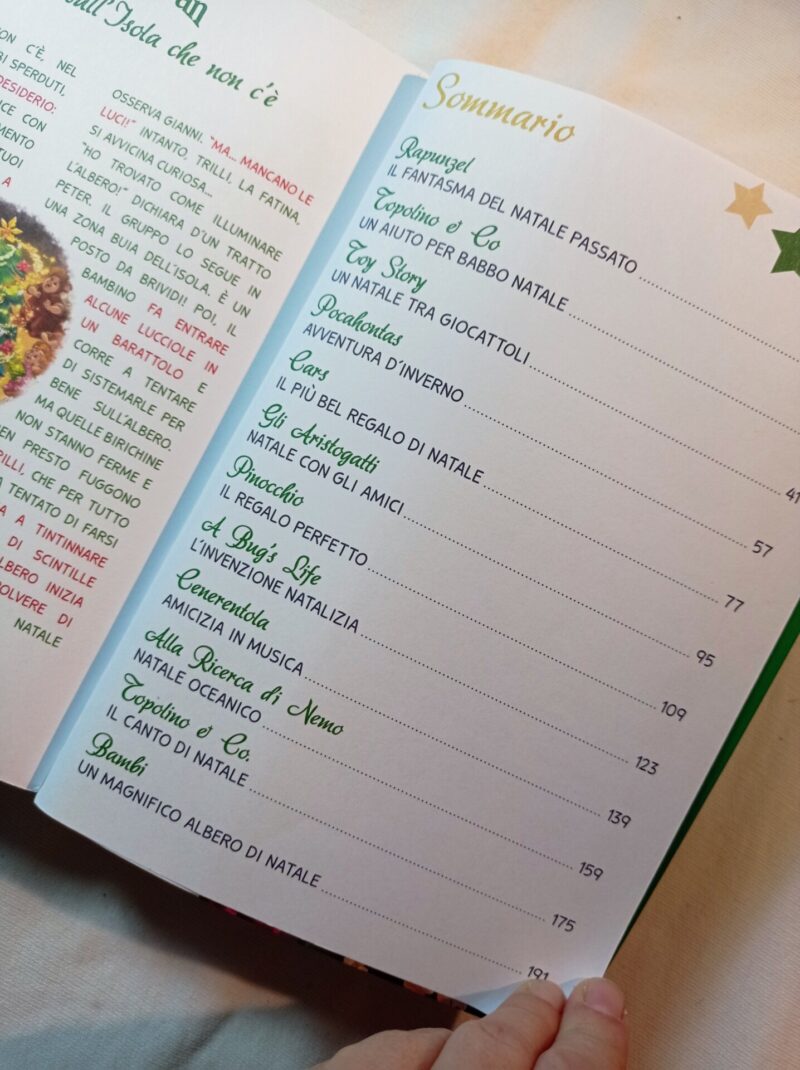 sull'Isola che non c'è
C'È, NEL
SPERDUTI,
DESIDERIO:
CON
TUOI
A
OSSERVA GIANNI. "MA... MANCANO LE
LUCI!" INTANTO, TRILLI, LA FATINA,
SI AVVICINA CURIOSA...
"HO TROVATO COME ILLUMINARE
L'ALBERO!" DICHIARA D'UN TRATTO
PETER. IL GRUPPO LO SEGUE IN
UNA ZONA BUIA DELL'ISOLA. È UN
POSTO DA BRIVIDI! POI, IL
BAMBINO FA ENTRARE
ALCUNE LUCCIOLE IN
UN BARATTOLO E
CORRE A TENTARE
DI SISTEMARLE PER
BENE SULL'ALBERO.
MA QUELLE BIRICHINE
NON STANNO FERME E
PRESTO FUGGONO
CHE PER TUTTO
TENTATO DI FARSI
A TINTINNARE
DI SCINTILLE
INIZIA
DI
NATALE
Sommario
Rapunzel
IL FANTASMA DEL NATALE PASSATO
Topolino & Co
UN AIUTO PER BABBO NATALE
Toy Story
UN NATALE TRA GIOCATTOLI 41
Pocahontas
AVVENTURA D'INVERNO 57
Cars
IL PIÙ BEL REGALO DI NATALE 77
Gli Aristogatti
NATALE CON GLI AMICI 95
Pinocchio
IL REGALO PERFETTO 109
A Bug's Life
L'INVENZIONE NATALIZIA 123
Cenerentola
AMICIZIA IN MUSICA 139
Alla Ricerca di Nemo
NATALE OCEANICO 159
Topolino & Co.
IL CANTO DI NATALE 175
Bambi
UN MAGNIFICO ALBERO DI NATALE 191